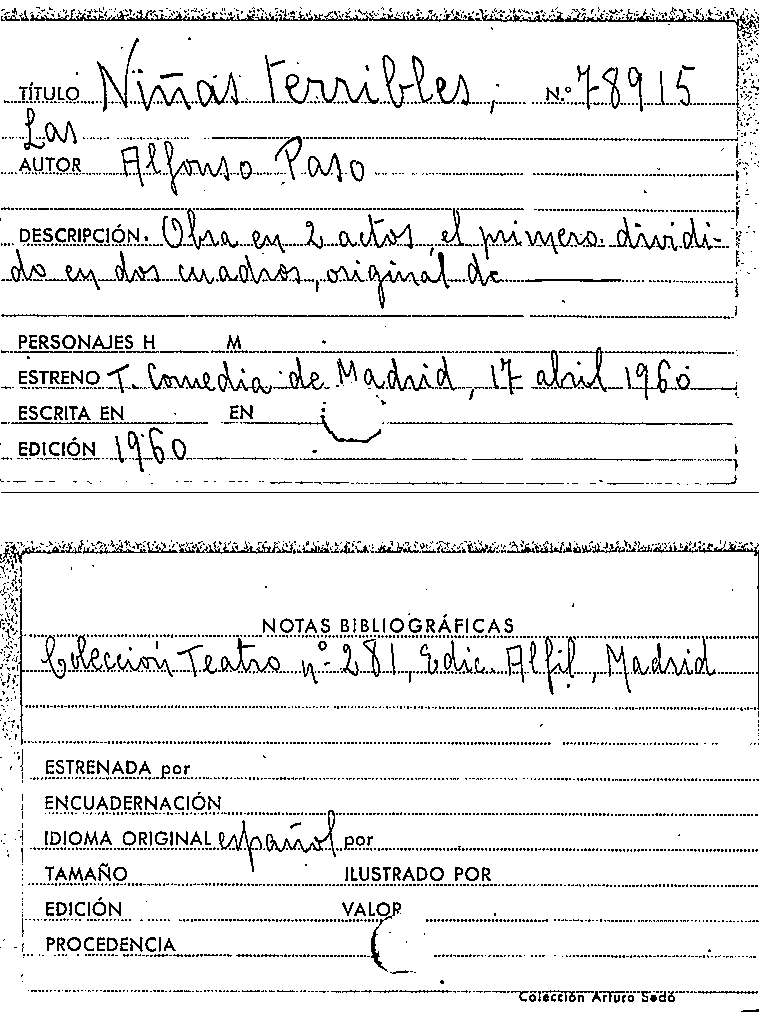 TÍTULO Niñas terribles, N.º 78915
Las
AUTOR Alfonso Paso
DESCRIPCIÓN. Obra en 2 actos, el primero dividi-
do en dos cuadros, original de ———
PERSONAJES H M
ESTRENO T. Comedia de Madrid, 17 abril 1960
ESCRITA EN EN
EDICIÓN 1960
NOTAS BIBLIOGRÁFICAS
Colección Teatro nº 281, Edic. Alfil, Madrid
ESTRENADA por
ENCUADERNACIÓN
IDIOMA ORIGINAL español por
TAMAÑO ILUSTRADO POR
EDICIÓN VALOR
PROCEDENCIA
Colección Arturo Sedó